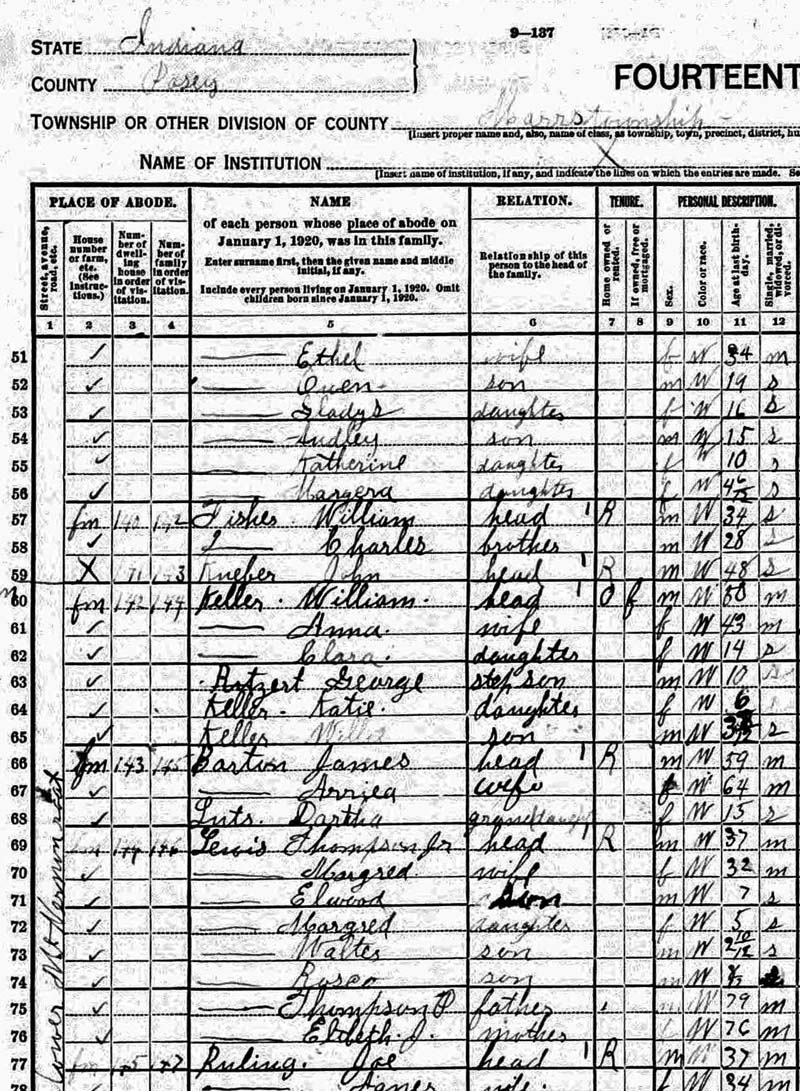 9—137
STATE Indiana
COUNTY Posey
FOURTEENT
TOWNSHIP OR OTHER DIVISION OF COUNTY Marrs township
[Insert proper name and, also, name of class, as township, town, precinct, district, hu
NAME OF INSTITUTION X
[Insert name of institution, if any, and indicate the lines on which the entries are made. Se
PLACE OF ABODE. NAME RELATION. TENURE. PERSONAL DESCRIPTION.
Street, avenue, road, etc.
House number or farm, etc. (See instructions.)
Number of dwelling house in order of visitation.
Number of family in order of visitation.
of each person whose place of abode on
January 1, 1920, was in this family.
Enter surname first, then the given name and middle
initial, if any.
Include every person living on January 1, 1920. Omit
children born since January 1, 1920.
Relationship of this
person to the head of
the family.
Home owned or rented.
If owned, free or mortgaged.
Sex.
Color or race.
Age at last birthday.
Single, married, widowed, or divorced.
1 2 3 4 5 6 7 8 9 10 11 12
51 ✓ —— Ethel wife f W 34 m
52 ✓ —— Owen son m W 19 s
53 ✓ —— Gladys daughter f W 16 s
54 ✓ —— Audley son m W 15 s
55 ✓ —— Katherine daughter f W 10 s
56 ✓ —— Margera daughter f W s
57 fm 140 142 Fisher William head 1 R m W 34 s
58 ✓ —— Charles brother m W 28 s
59 X 143 Kueber John head 1 R m W 48 s
60 fm 142 144 Keller William head 1 O f m W m
61 ✓ —— Anna wife f W 43 m
62 ✓ —— Clara daughter f W 14 s
63 ✓ Artzert George step son m W 10 s
64 ✓ Keller Katie daughter f W 6
65 ✓ Keller son m W s
66 fm 143 145 Barton James head 1 R m W 59 m
67 ✓ —— wife f W 64 m
68 ✓ Luts Dortha granddaugh f W 15 s
69 fm 144 146 Lewis Thompson Jr head R m W 37 m
70 ✓ —— Margred wife f W 32 m
71 ✓ —— Elwood son m W 7 s
72 ✓ —— Margred daughter f W 5 s
73 ✓ —— Walter son m W 2 10/12 s
74 ✓ —— Rosco son m W
75 ✓ —— Thompson P father m W 79 m
76 ✓ —— Elsbeth J. mother f W 76 m
77 fm 145 147 Ruling Joe head 1 R m W 37 m
78 —— wife f W 34 m